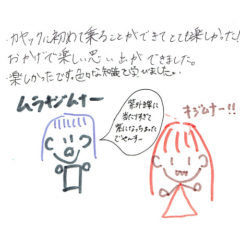 カヤックに初めて乗ることができてとても楽しかった!
おかげで楽しい思い出ができました。
楽しかったです。色々な知識も
ムラサジムナー
キジムナー!!
紫外線に
当たりすぎて
紫になっちゃった
でやんすー